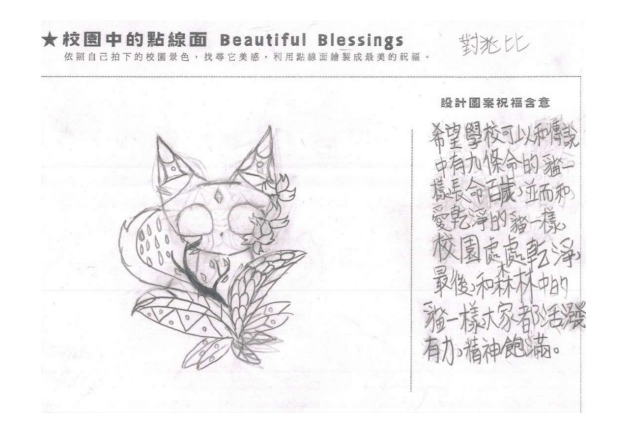 ★校園中的點線面 Beautiful Blessings
依照自己拍下的校園景色，找尋它美感，利用點線面繪製成最美的祝福。
對比
設計圖案祝福含意
希望學校可以和傳說
中有九條命的貓一
樣長命百歲，並而和
愛乾淨的貓一樣，
校園處處乾淨，
最後，和森林中的
貓一樣大家都活潑
有力、精神飽滿。